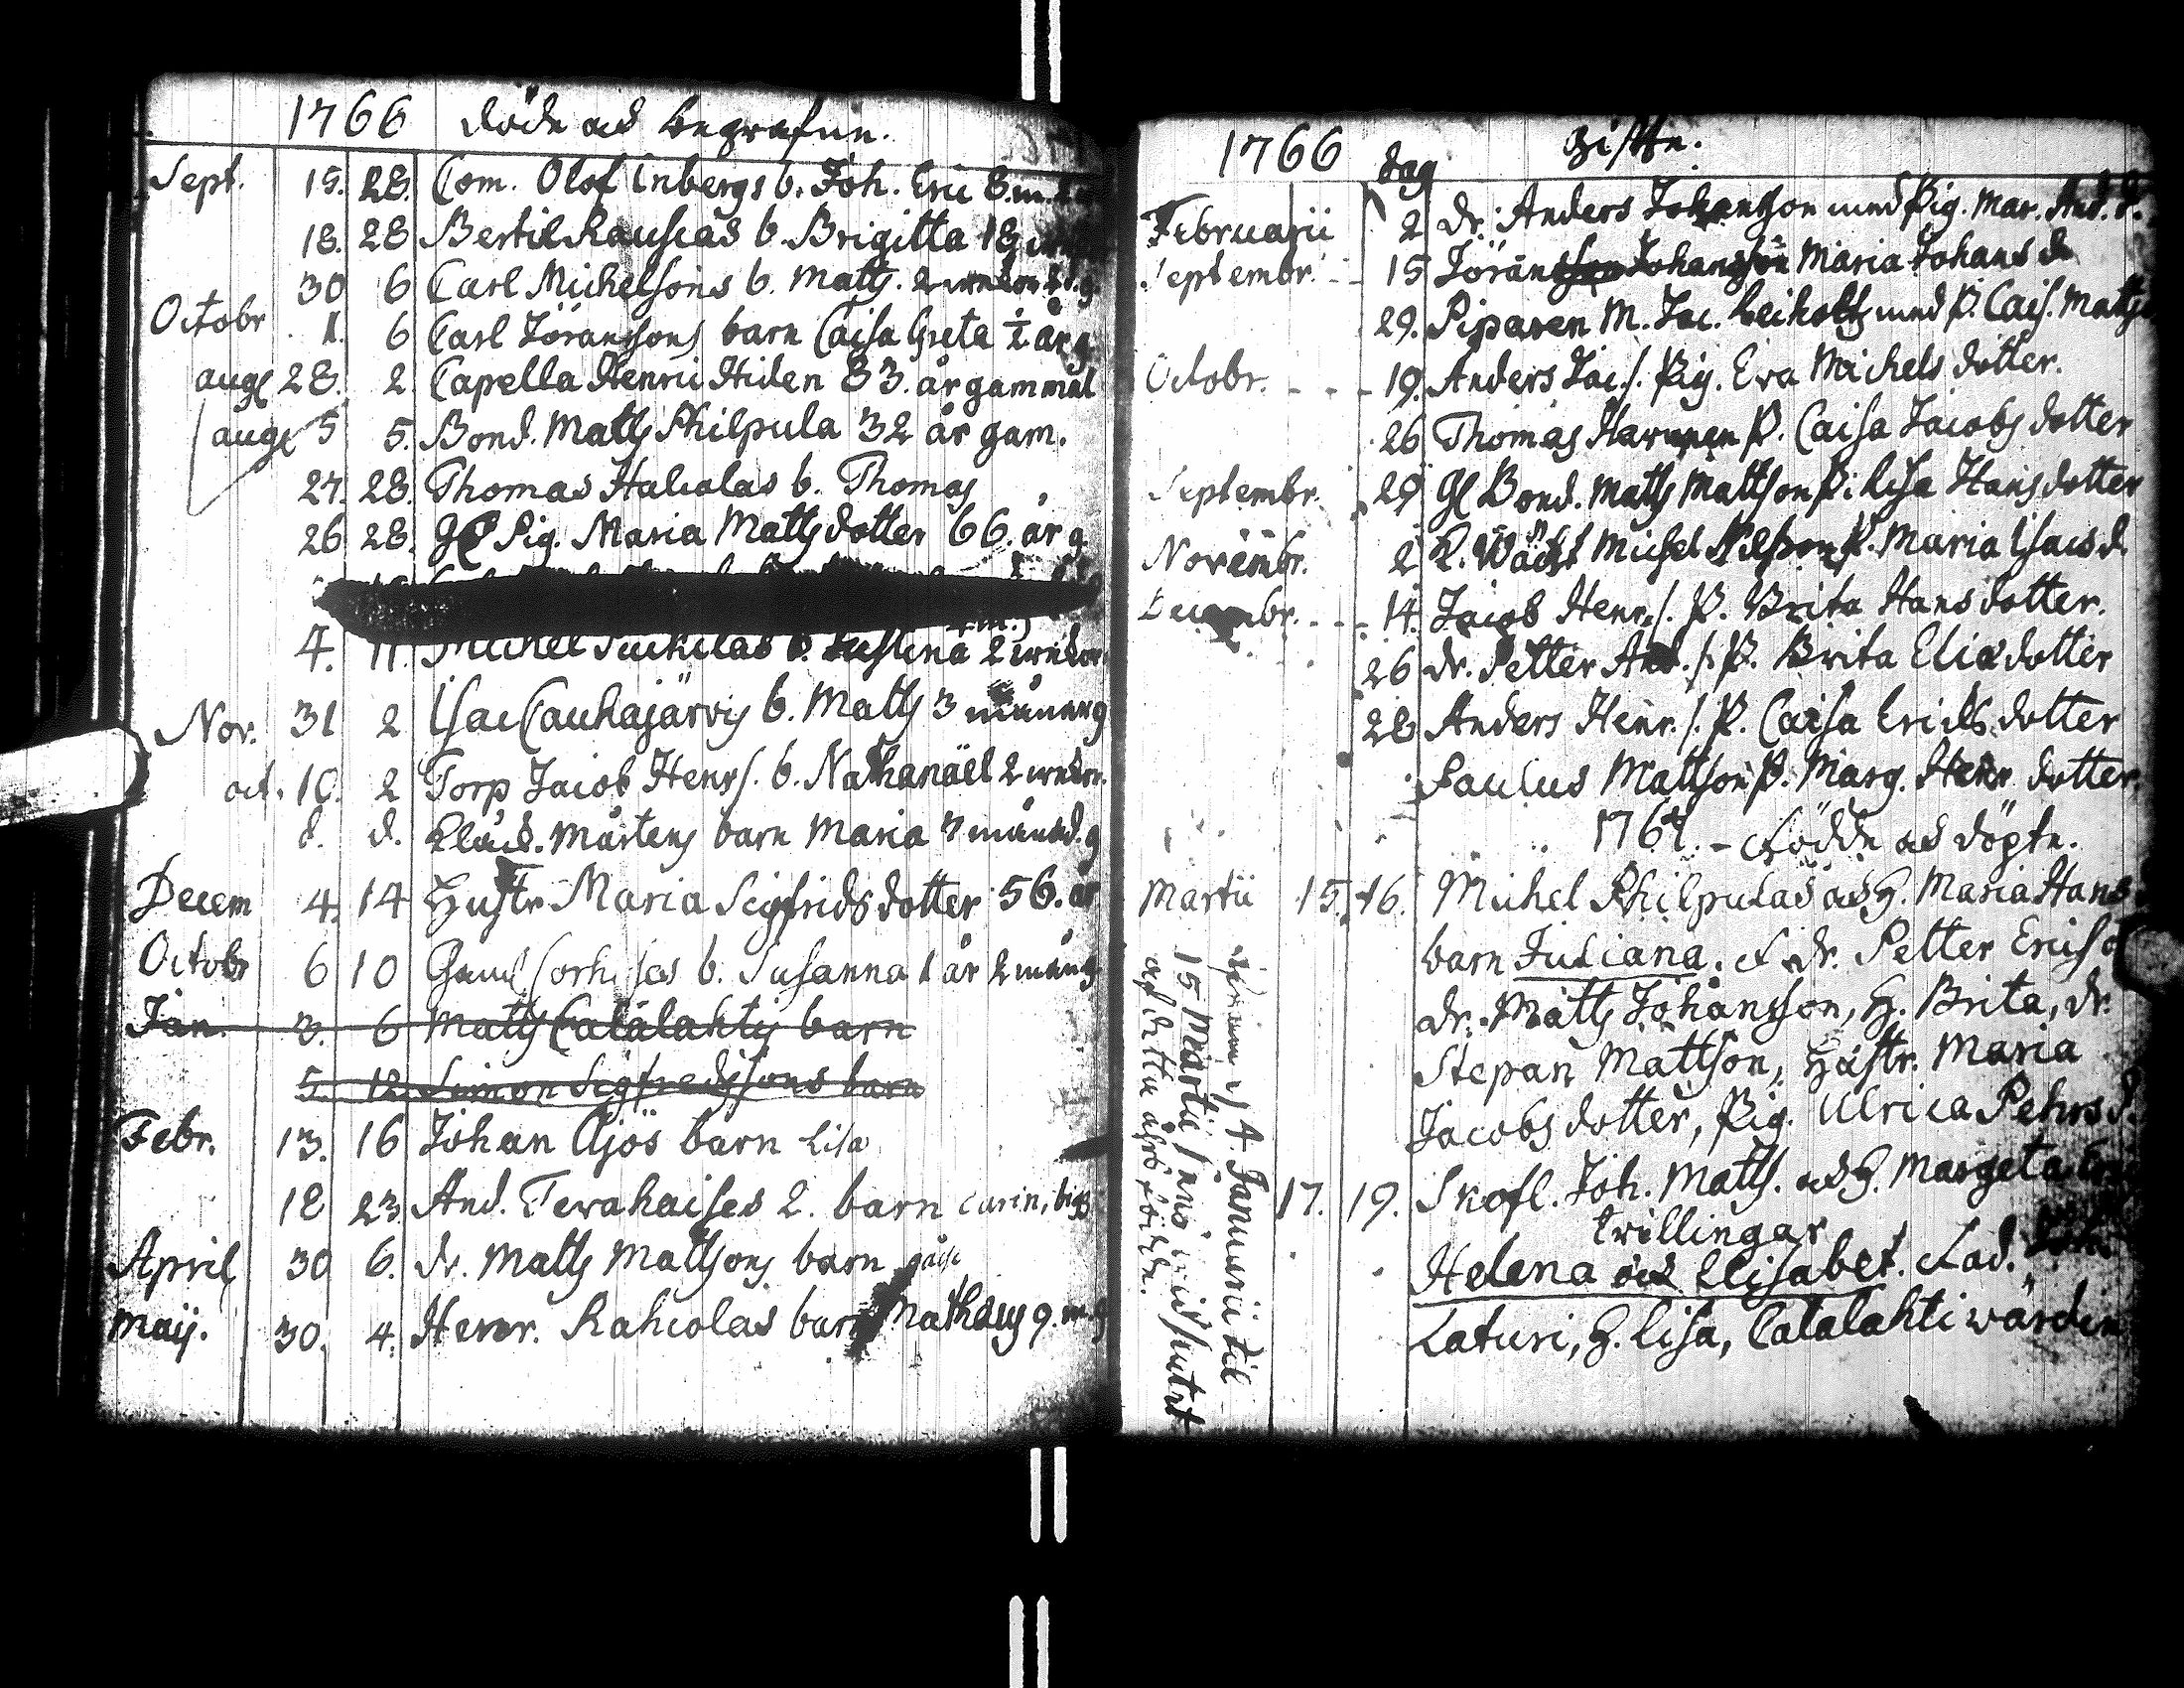 1766 Döde och begrafne.
Sept. 15. 28. Com. Olof Enbergs b. Joh. Eric 8. m.
18. 28 Bertil Rauscas b. Brigitta 18
30 6 Carl Michelsons b. Matts. 2
Octobr 1. 6 Carl Jöranssons barn Caisa Greta ½ år g
aug 28. 2 Capella Henric Hiden 83. år gammal
aug 5 5. Bond. Matts Philpula 32 år gam.
27. 28. Thomas Halcolas b. Thomas
26 28. Gl Pig. Maria Matts dotter 66. år g
4. 11. Michel b. 2
Nov. 31 2 Isac Cauhajärvis b. Matts 3 månar g
oct. 10. 2 Torp Jacob Henrs. b. Nathanäel 2
d. d. Mårtens barn Maria 3 månad. g
Decem 4. 14 Hustr Maria Sigfrids dotter 56. år
Octobr 6 10 b. Susanna 1 år 2 mån g
Jan. 3. 6 Matts Catalahtis barn
5. 12. Simon Sigfredssons barn
Febr. 13. 16 Johan Öjös barn Lisa
18 23. And. Tervahaises 2. barn Carin,
April 30 6. dr. Matts Matssons barn
Maij. 30. 4. Henr. Rahcolas barn Mathäus 9. m g
1766 dag Gifte.
Februarii 2 dr. Anders Johansson med Pig. Mar. And. d.
Septembr. 15 Jöransson Johansson Maria Johans d
29. Piparen M. Jac. med P. Cais. Matts
Octobr. 19. Anders Jac. s. Pig. Eva Michels dotter.
26 Thomas P. Caisa Jacobs dotter
Septembr. 29 Gl Bond. Matts Mattson P. Lisa Hans dotter
Novembr. 2 Michel Nilsson P. Maria Isacs d.
Decembr. 14. Jacob Henr. s. P. Brita Hans dotter.
26 dr. Petter And. s. P. Brita Elias dotter
28 Anders Henr. s. P. Caisa Erics dotter
Paulus Mattson P. Marg. Henr dotter.
1767. - Födde och döpte.
Martii 15. 16. Michel Philpulas och H. Maria Hans
barn Juliana. F. dr. Petter Erics
dr. Matts Johansson, H. Brita, dr.
Stepan Mattson, Hustr. Maria
Jacobs dotter, Pig. Ulrica Pehrs d.
17. 19. Skofl. Joh. Matts. och H. Margeta
tvillingar
Helena och Elisabet. Fad.
Laturi, H. Lisa, Catalahti värden
4. Januarii til
15 Martii
af detta åhr